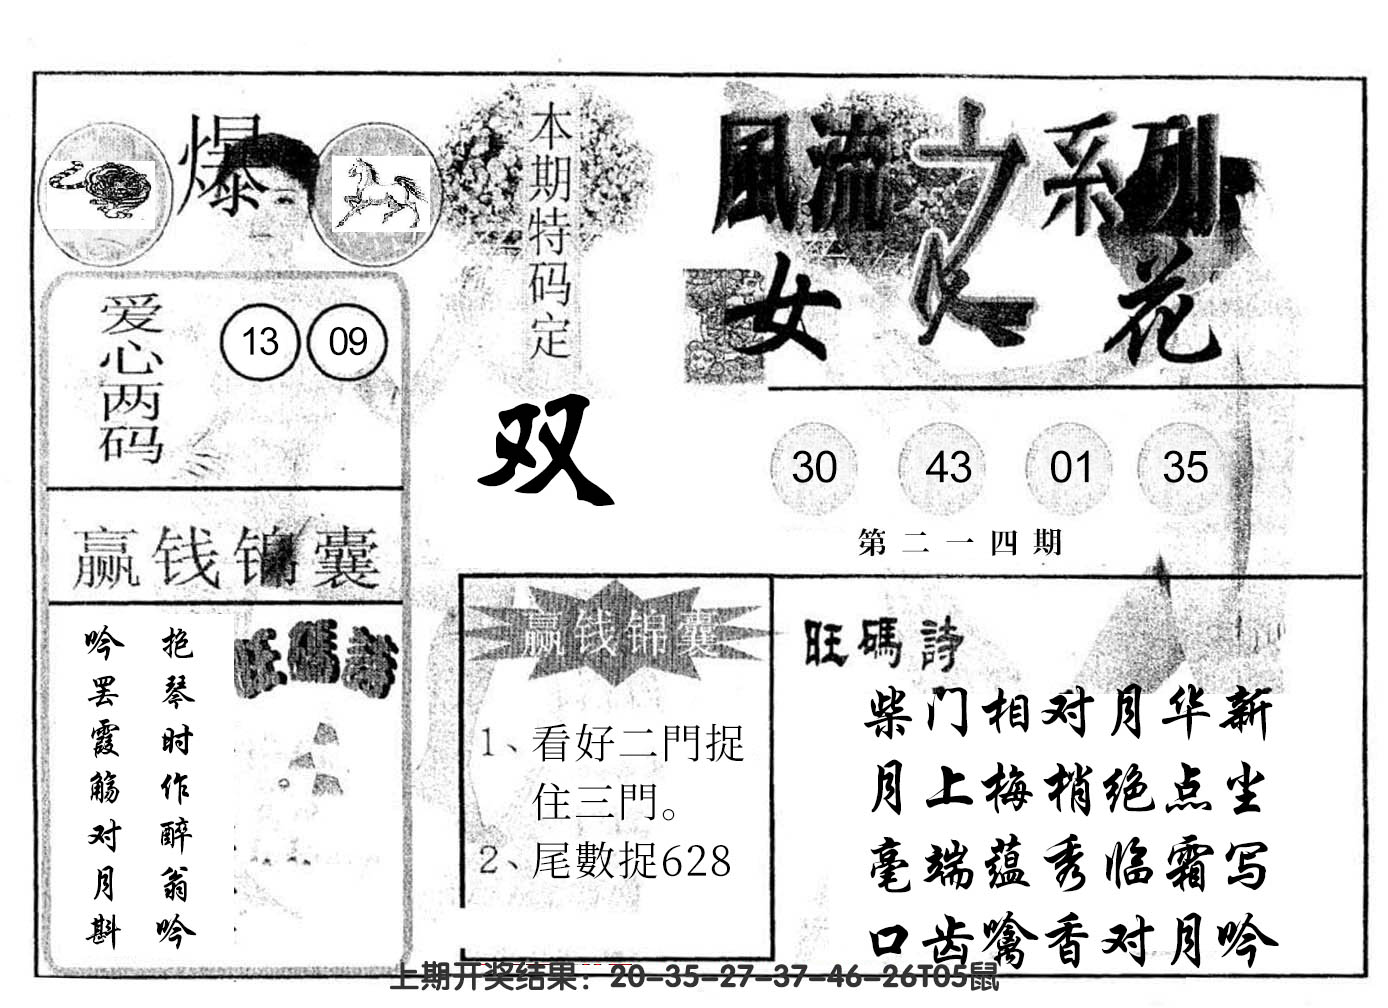 爆
本期特码定
双
風流之系列
女人花
爱心两码
13 09
30 43 01 35
第二一四期
赢钱锦囊
抱琴时作醉翁吟
吟罢霞觞对月斟
旺碼詩
赢钱锦囊
1、看好二門捉
住三門。
2、尾數捉628
旺碼詩
柴门相对月华新
月上梅梢绝点尘
毫端蕴秀临霜写
口齿噙香对月吟
上期开奖结果：20-35-27-37-46-26T05鼠